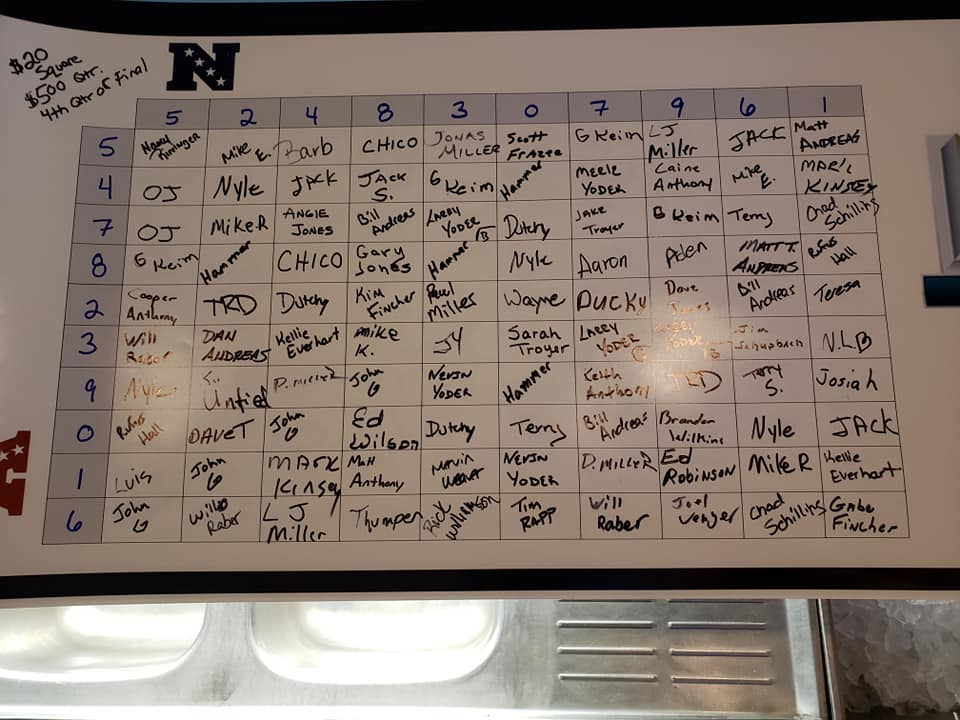 $20
Square
$500 Qtr.
4th Qtr or Final
N
5 2 4 8 3 0 7 9 6 1
5 Mike E. Barb CHICO JONAS MILLER Scott Frazee G Keim LJ Miller JACK Matt ANDREAS
4 OJ Nyle JACK JACK S. G Keim Hammer MERLE YODER Laine Anthony Mike E. MARK KINSEY
7 OJ MIKE R ANGIE JONES Bill Andreas LARRY YODER Dutchy JAKE Troyer G Keim Terry Chad Schilling
8 G Keim Hammer CHICO Gary Jones Hammer Nyle Aaron Aden MATT T. ANDREAS Rufus Hall
2 Cooper Anthony TRD Dutchy Kim Fincher Paul Miller Wayne DUCKY Dave Jones Bill Andreas Teresa
3 Will Raber DAN ANDREAS Kellie Everhart MIKE K. JY Sarah Troyer LARRY YODER LARRY YODER Jim Schupbach N.L.B
9 Nyle Untied D. MILLER John G NEVIN YODER Hammer Keith Anthony TRD Terry S. Josiah
0 Rufus Hall DAVE T John G Ed Wilson Dutchy Terry Bill Andreas Brandon Wilkins Nyle JACK
1 Luis John G MARK Kinsey Matt Anthony Marvin Weaver NEVIN YODER D. MILLER Ed ROBINSON MIKE R Kellie Everhart
6 John G Will Raber LJ Miller Thumper Rick Williamson Tim RAPP Will Raber Joel Yenger Chad Schilling Gabe Fincher
A